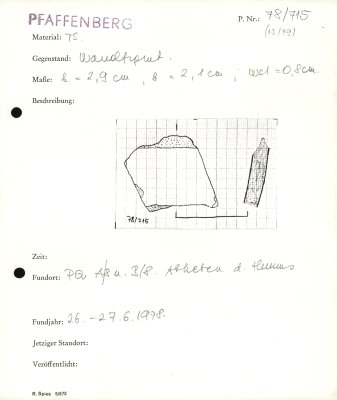 PFAFFENBERG
P. Nr.: 78/715
(13/79)
Material: TS
Gegenstand: Wandsplitt.
Maße: h = 2,9 cm, b = 2,1 cm; Wst = 0,8 cm
Beschreibung:
78/715
Zeit:
Fundort: PQ u. 3/8. d. Humus
Fundjahr: 26. - 27.6.1978.
Jetziger Standort:
Veröffentlicht:
R. Spies 5/872